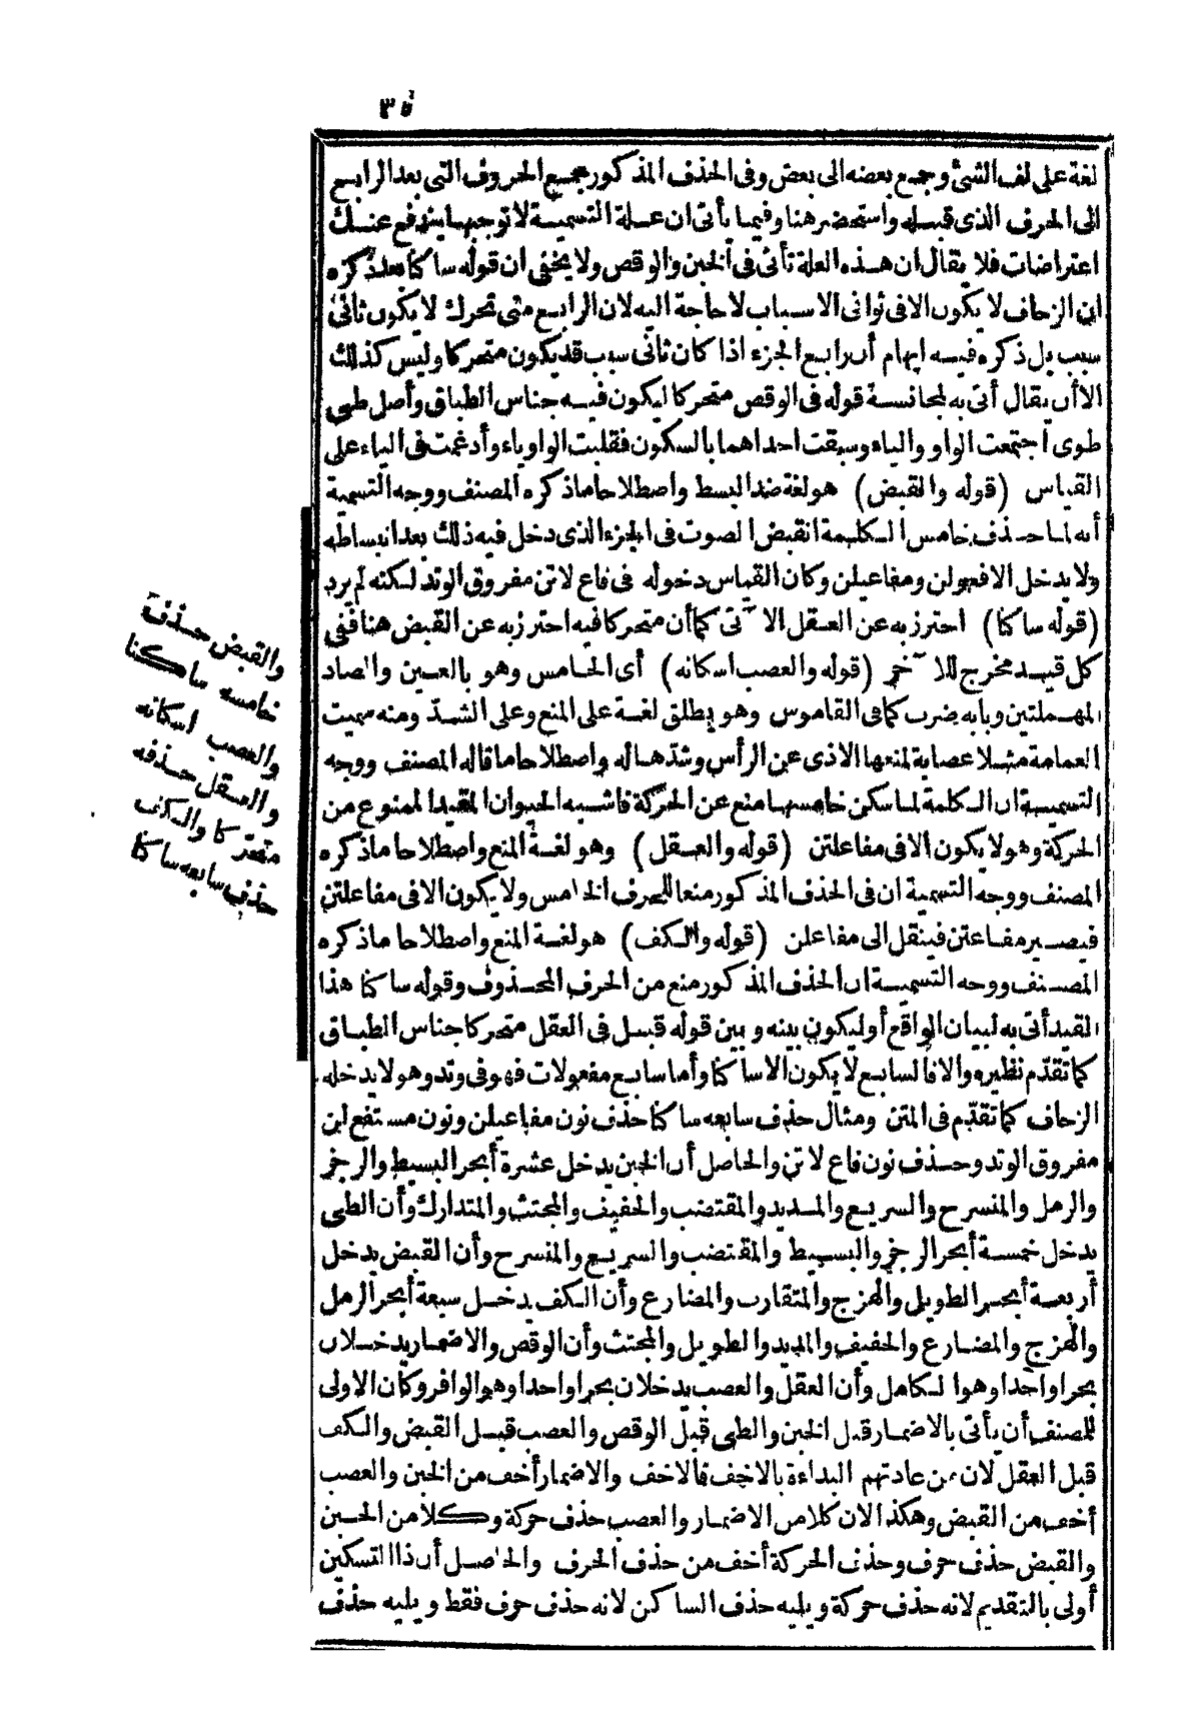 ٣٥
لغة على لف الشئ وجمع بعضه الى بعض وفى الحذف المذكور جميع الحروف التى بعد الرابع
الى الحرف الذى قبله واستحضر هنا وفيما يأتى ان علة التسمية لا توجبها يندفع عنك
اعتراضات فلا يقال ان هذه العلة تأتى فى الخبن والوقص ولا يخفى ان قوله ساكنا بعد ذكره
ان الزحاف لا يكون الا فى ثوانى الاسباب لا حاجة اليه لان الرابع متى تحرك لا يكون ثانى
سبب بل ذكره فيه ايهام أن رابع الجزء اذا كان ثانى سبب قد يكون متحركا وليس كذلك
الا أن يقال أتى به لمجانسة قوله فى الوقص متحركا ليكون فيه جناس الطباق وأصل طى
طوى اجتمعت الواو والياء وسبقت احداهما بالسكون فقلبت الواو ياء وأدغمت فى الياء على
القياس (قوله والقبض) هو لغة ضد البسط واصطلاحا ماذكره المصنف ووجه التسمية
أنه لما حذف خامس الكلمة انقبض الصوت فى الجزء الذى دخل فيه ذلك بعد انبساطه
ولا يدخل الا فعولن ومفاعيلن وكان القياس دخوله فى فاع لاتن مفروق الوتد لكنه لم يرد
(قوله ساكنا) احترز به عن العقل الا آتى كما أن متحركا فيه احترز به عن القبض هنا ففى
كل قيد مخرج للا آخر (قوله والعصب اسكانه) أى الخامس وهو بالعين والصاد
المهملتين وبابه ضرب كما فى القاموس وهو يطلق لغة على المنع وعلى الشدّ ومنه سميت
العمامة مثلا عصابة لمنعها الاذى عن الرأس وشدّها له واصطلاحا ما قاله المصنف ووجه
التسمية ان الكلمة لما سكن خامسها منع عن الحركة فاشبه الحيوان المقيد الممنوع من
الحركة وهو لا يكون الا فى مفاعلتن (قوله والعقل) وهو لغة المنع واصطلاحا ماذكره
المصنف ووجه التسمية ان فى الحذف المذكور منعا للحرف الخامس ولا يكون الا فى مفاعلتن
فيصير مفاعتن فينقل الى مفاعلن (قوله والكف) هو لغة المنع واصطلاحا ماذكره
المصنف ووجه التسمية ان الحذف المذكور منع من الحرف المحذوف وقوله ساكنا هذا
القيد أتى به لبيان الواقع أو ليكون بينه وبين قوله قبل فى العقل متحركا جناس الطباق
كما تقدّم نظيره والا فالسابع لا يكون الا ساكنا وأما سابع مفعولات فهو فى وتد وهو لا يدخله
الزحاف كما تقدّم فى المتن ومثال حذف سابعه ساكنا حذف نون مفاعيلن ونون مستفع لن
مفروق الوتد وحذف نون فاع لاتن والحاصل أن الخبن يدخل عشرة أبحر البسيط والرجز
والرمل والمنسرح والسريع والمديد والمقتضب والخفيف والمجتث والمتدارك وأن الطى
يدخل خمسة أبحر الرجز والبسيط والمقتضب والسريع والمنسرح وأن القبض يدخل
أربعة أبحر الطويل والهزج والمتقارب والمضارع وأن الكف يدخل سبعة أبحر الرمل
والهزج والمضارع والخفيف والمديد والطويل والمجتث وأن الوقص والاضمار يدخلان
بحرا واحدا وهو الكامل وأن العقل والعصب يدخلان بحرا واحدا وهو الوافر وكان الاولى
للمصنف أن يأتى بالاضمار قبل الخبن والطى قبل الوقص والعصب قبل القبض والكف
قبل العقل لان من عادتهم البداءة بالاخف فالاخف والاضمار أخف من الخبن والعصب
أخف من القبض وهكذا لان كلا من الاضمار والعصب حذف حركة وكلا من الخبن
والقبض حذف حرف وحذف الحركة أخف من حذف الحرف والحاصل أن ذا التسكين
أولى بالتقديم لانه حذف حركة ويليه حذف الساكن لانه حذف حرف فقط ويليه حذف
والقبض حذف
خامسه ساكنا
والعصب اسكانه
والعقل حذفه
متحرّكا والكف
حذف سابعه ساكنا